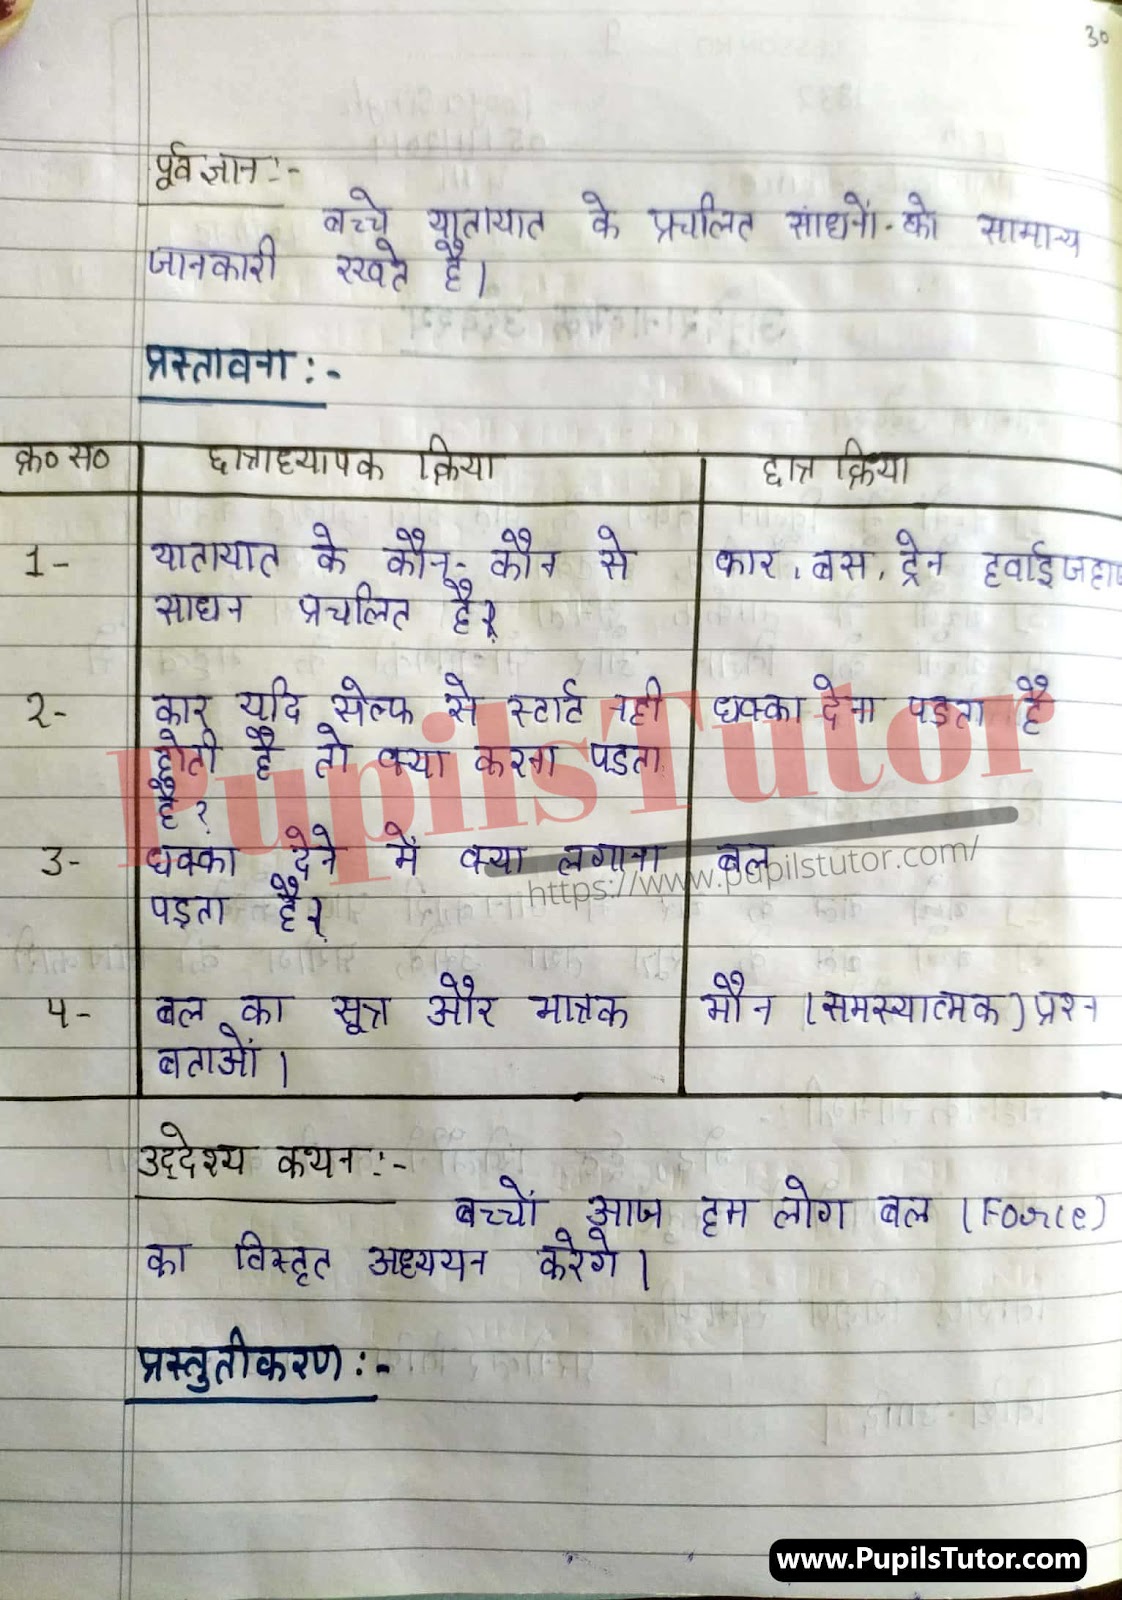 30
पूर्वज्ञान :-
बच्चे यातायात के प्रचलित साधनों को सामान्य
जानकारी रखते है।
प्रस्तावना :-
क्र० स० छात्राध्यापक क्रिया छात्र क्रिया
1- यातायात के कौन-कौन से कार, बस, ट्रेन हवाईजहाज
साधन प्रचलित है?
2- कार यदि सेल्फ से स्टार्ट नही धक्का देना पड़ता है
होती है तो क्या करना पडता
है?
3- धक्का देने में क्या लगाना बल
पड़ता है?
4- बल का सूत्र और मात्रक मौन (समस्यात्मक) प्रश्न
बताओं।
उद्देश्य कथन :-
बच्चों आज हम लोग बल (Force)
का विस्तृत अध्ययन करेगे।
प्रस्तुतीकरण :-
PupilsTutor
https://www.pupilstutor.com/
www.PupilsTutor.com